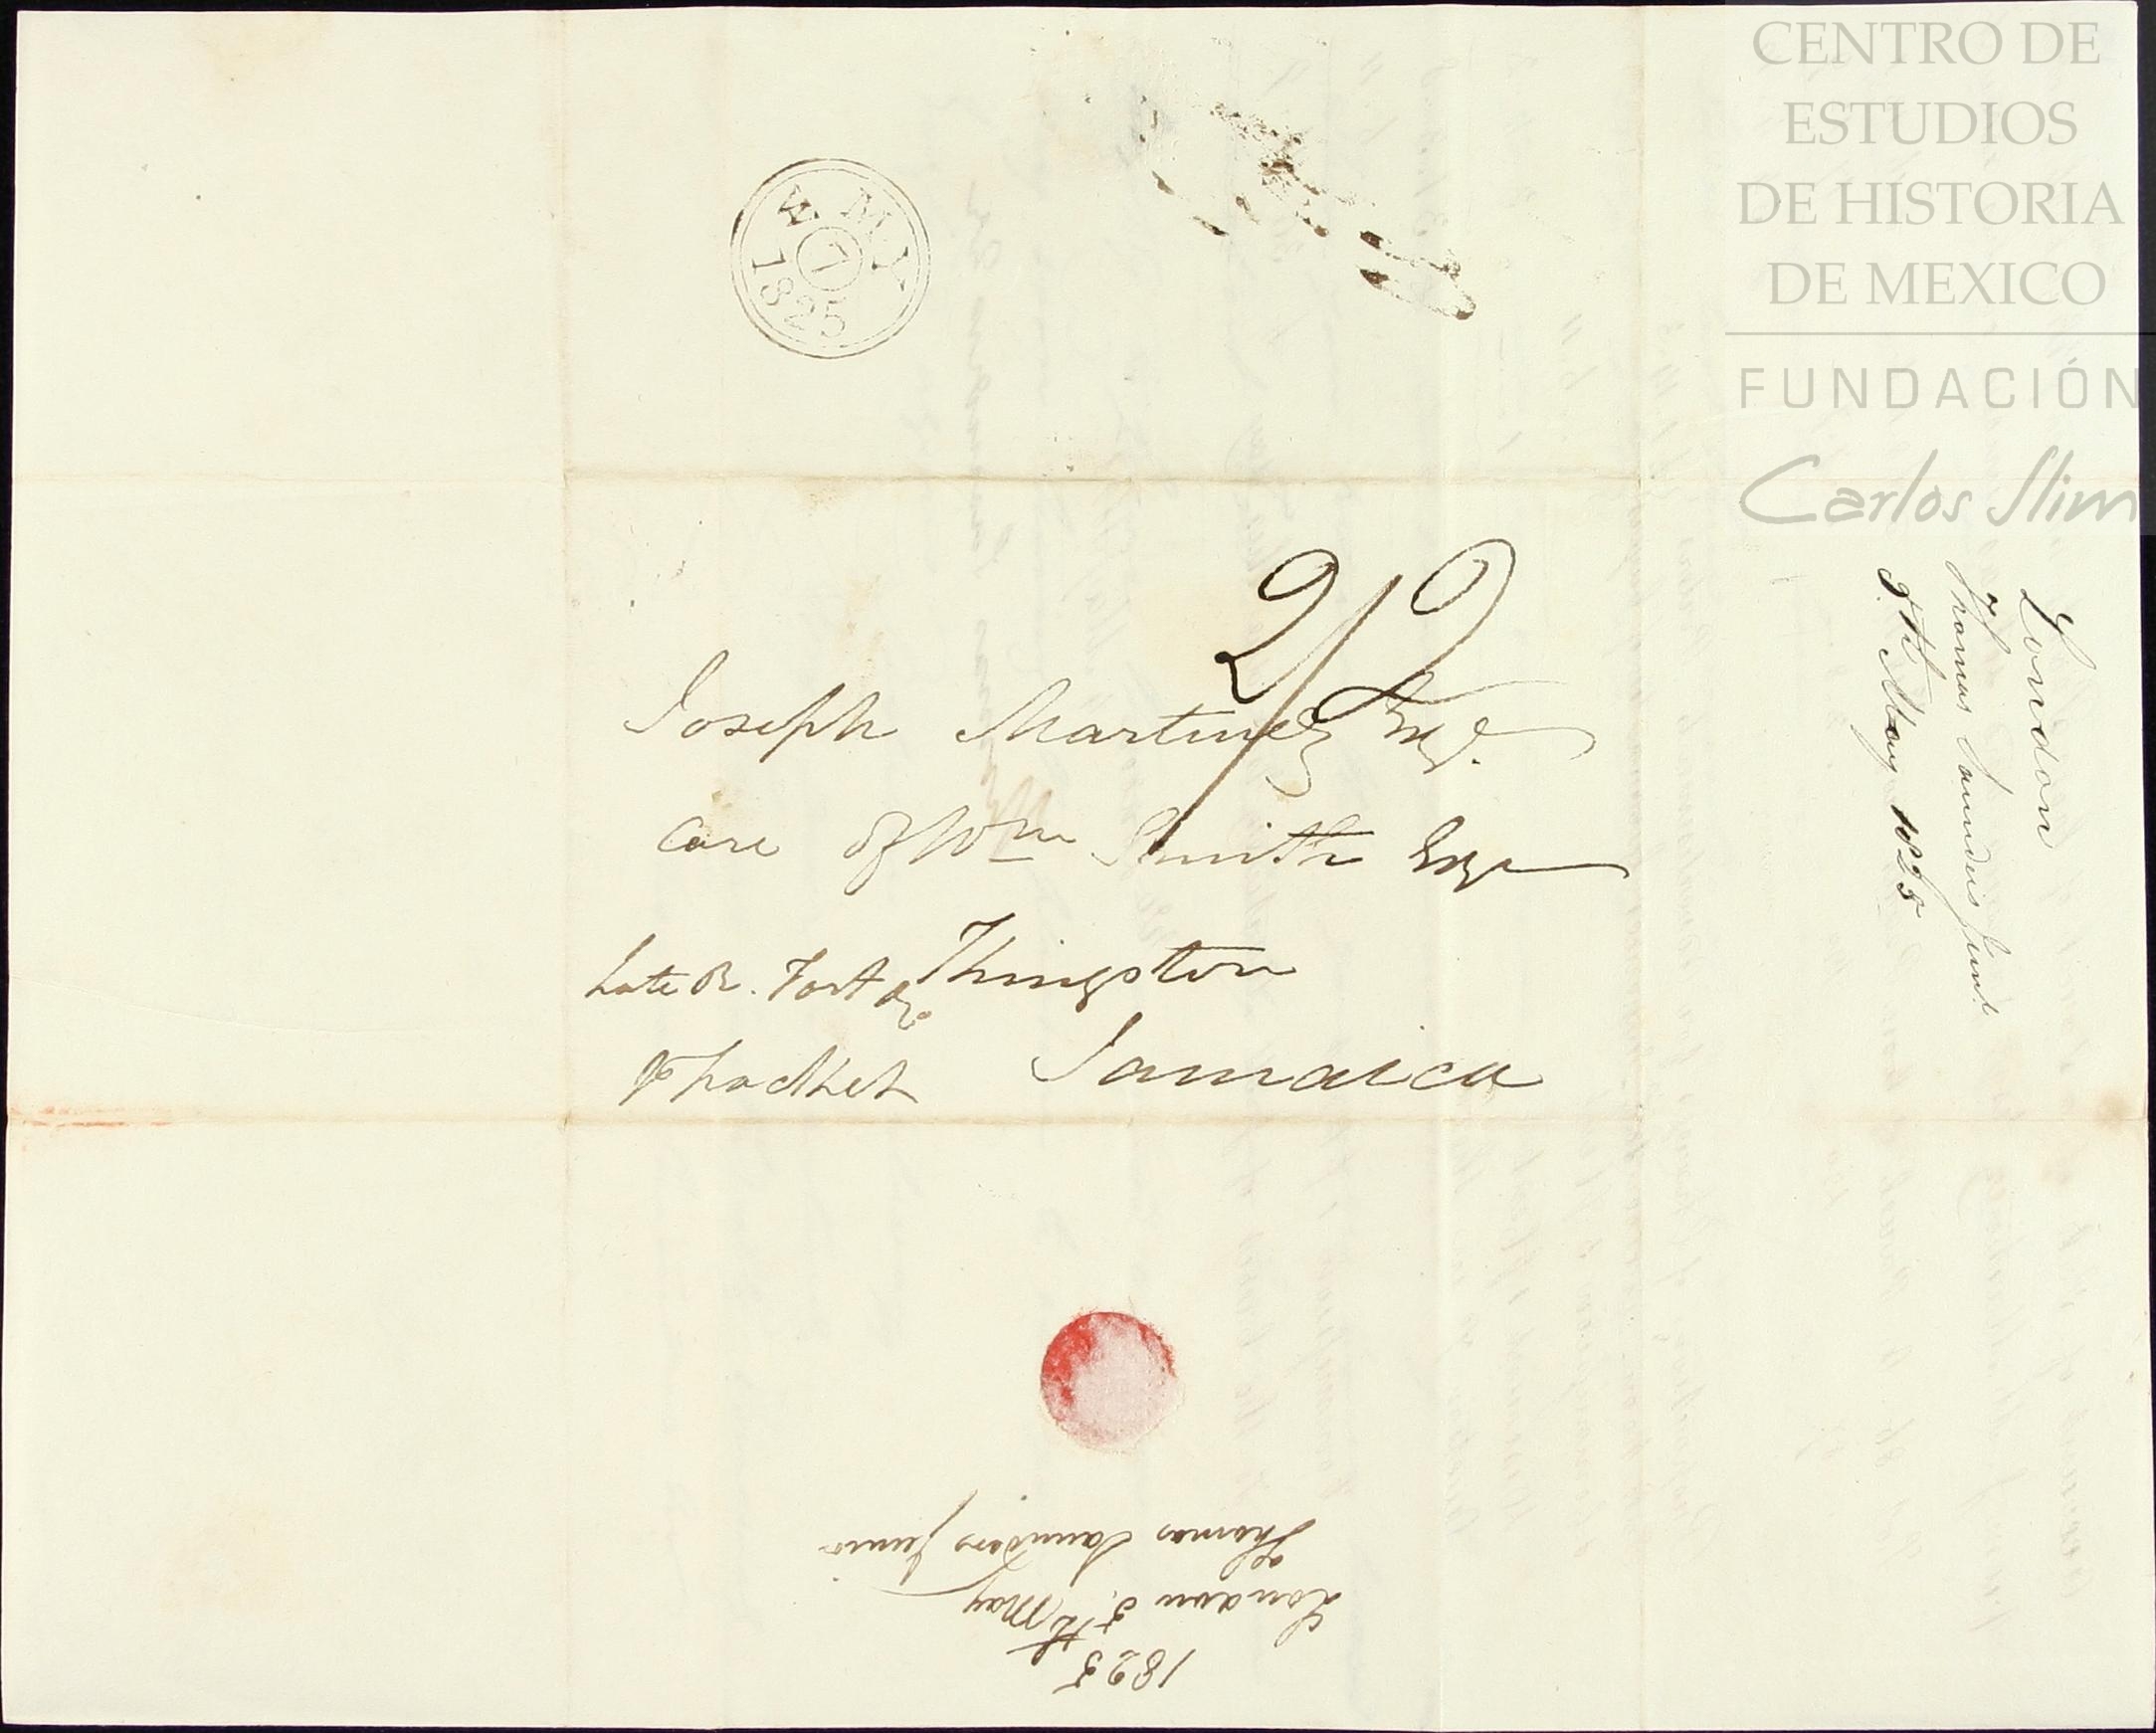 CENTRO DE
ESTUDIOS
DE HISTORIA
DE MEXICO
FUNDACIÓN
Carlos Slim
W MY
7
1825
2/2
Joseph Martinez Esqr.
Care of Wm Smith Esqr
Kingston
Jamaica
Packet
London
Thomas Saunders Junr.
5th May 1825
1825
London 5th May
Thomas Saunders Junr